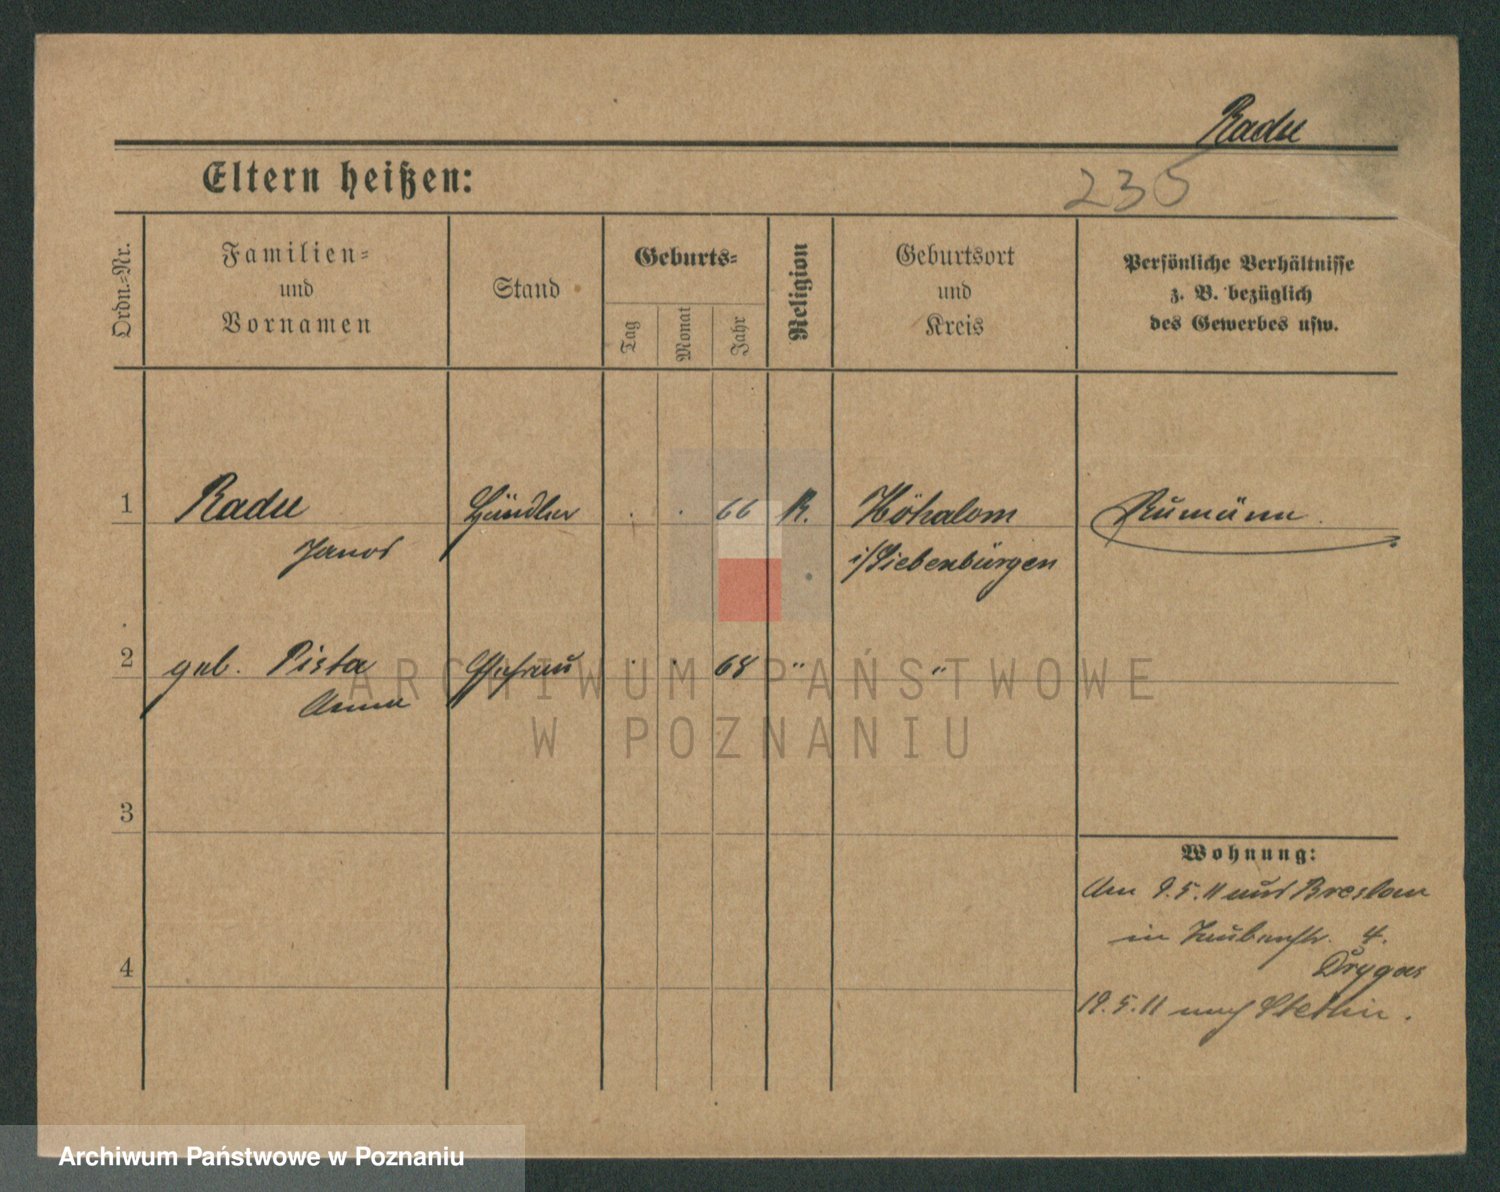 Radu
Eltern heißen:
235
Ordn.-Nr.
Familien-
und
Vornamen
Stand
Geburts-
Tag
Monat
Jahr
Religion
Geburtsort
und
Kreis
Persönliche Verhältnisse
z. B. bezüglich
des Gewerbes usw.
1 Radu Händler . . 66 K. Köhalom Rumäne.
Janos i/Siebenbürgen
2 geb. Pista Ehefrau . . 68 " "
Anna
3
4
Wohnung:
Am 9.5.11 aus Breslau
in Taubenstr. 4.
Drygas
19.5.11 nach Stettin.
ARCHIWUM PAŃSTWOWE
W POZNANIU
Archiwum Państwowe w Poznaniu